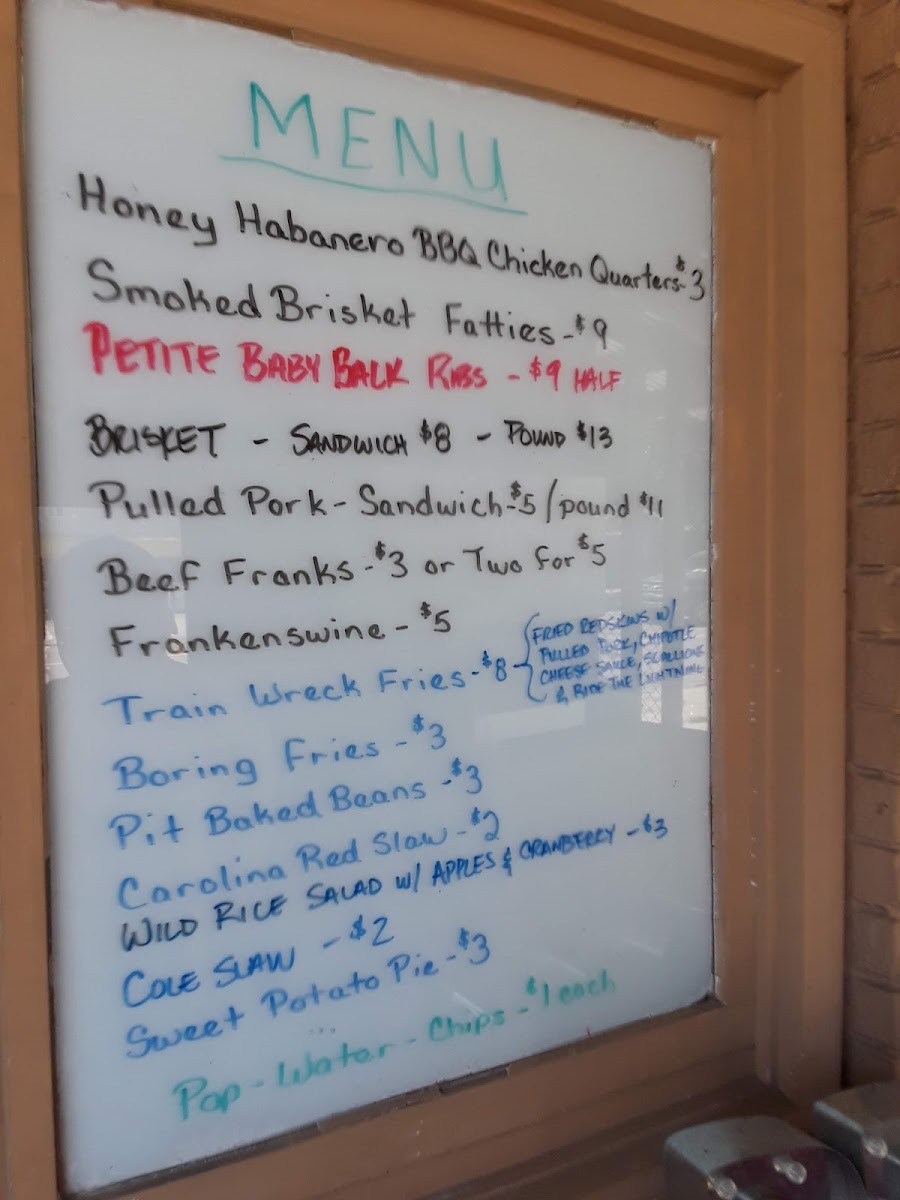 MENU
Honey Habanero BBQ Chicken Quarters-$3
Smoked Brisket Fatties-$9
PETITE BABY BACK RIBS - $9 HALF
BRISKET - SANDWICH $8 - POUND $13
Pulled Pork-Sandwich-$5/pound $11
Beef Franks-$3 or Two for $5
Frankenswine-$5
Train Wreck Fries-$8
FRIED REDSKINS W/
PULLED PORK, CHIPOTLE
CHEESE SAUCE, SCALLIONS
& RIDE THE LIGHTNING
Boring Fries-$3
Pit Baked Beans-$3
Carolina Red Slaw-$2
WILD RICE SALAD W/ APPLES & CRANBERRY-$3
COLE SLAW -$2
Sweet Potato Pie-$3
Pop-Water-Chips-$1 each